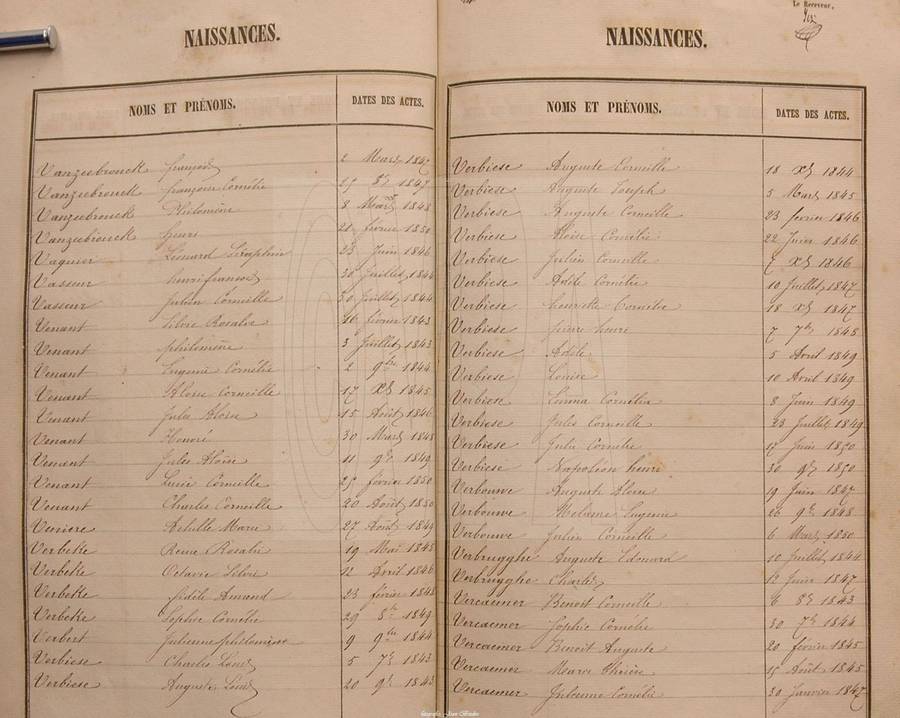 NAISSANCES.
NOMS ET PRÉNOMS. DATES DES ACTES.
Vanzeebrouck françois 2 Mars 1847
Vanzeebrouck françoise Cornélie 25 8bre 1847
Vanzeebrouck Philomène 8 Mars 1848
Vanzeebrouck henri 21 février 1850
Vaquier Léonard Séraphin 23 Juin 1846
Vasseur henri françois 30 Juillet 1844
Vasseur Julien Corneille 20 Juillet 1844
Venant Silvie Rosalie 16 février 1843
Venant philomène 3 Juillet 1843
Venant Eugenie Cornélie 2 9bre 1844
Venant Aloise Corneille 17 Xbre 1845
Venant Jules Aloise 15 Août 1846
Venant Honoré 30 Mars 1848
Venant Jules Aloïse 11 9bre 1849
Venant Corneille 25 février 1850
Venant Charles Corneille 20 Août 1850
Veniere Achille Marie 27 Août 1849
Verbeke Reine Rosalie 19 Mai 1845
Verbeke Octavie Silvie 12 Avril 1846
Verbeke fidèle Amand 23 février 1848
Verbeke Sophie Cornélie 29 8bre 1849
Verbert Julienne philomène 9 9bre 1844
Verbiese Charles Louis 5 7bre 1843
Verbiese Auguste Louis 20 9bre 1843
Le Receveur,
NAISSANCES.
NOMS ET PRÉNOMS. DATES DES ACTES.
Verbiese Auguste Corneille 18 Xbre 1844
Verbiese Auguste Joseph 5 Mars 1845
Verbiese Auguste Corneille 23 février 1846
Verbiese Aloïse Cornélie 22 Juin 1846
Verbiese Julien Corneille 7 Xbre 1846
Verbiese Adèle Cornélie 10 Juillet 1847
Verbiese henriette Cornélie 18 Xbre 1847
Verbiese pierre henri 7 7bre 1848
Verbiese Adèle 5 Avril 1849
Verbiese Louise 10 Avril 1849
Verbiese Emma Cornélia 8 Juin 1849
Verbiese Jules Corneille 23 Juillet 1849
Verbiese Julie Cornélie 17 Juin 1850
Verbiese Napoléon henri 30 9bre 1850
Verbouwe Auguste Aloise 19 Juin 1847
Verbouwe Mélanie Eugenie 22 9bre 1848
Verbouwe Julien Corneille 6 Mars 1850
Verbrugghe Auguste Edouard 10 Juillet 1844
Verbrugghe Charles 12 Juin 1847
Vercaemer Benoit Corneille 6 8bre 1843
Vercaemer Sophie Cornélie 30 7bre 1844
Vercaemer Benoit Auguste 20 février 1845
Vercaemer Marie Thérèse 15 Août 1845
Vercaemer Julienne Cornélie 30 Janvier 1847